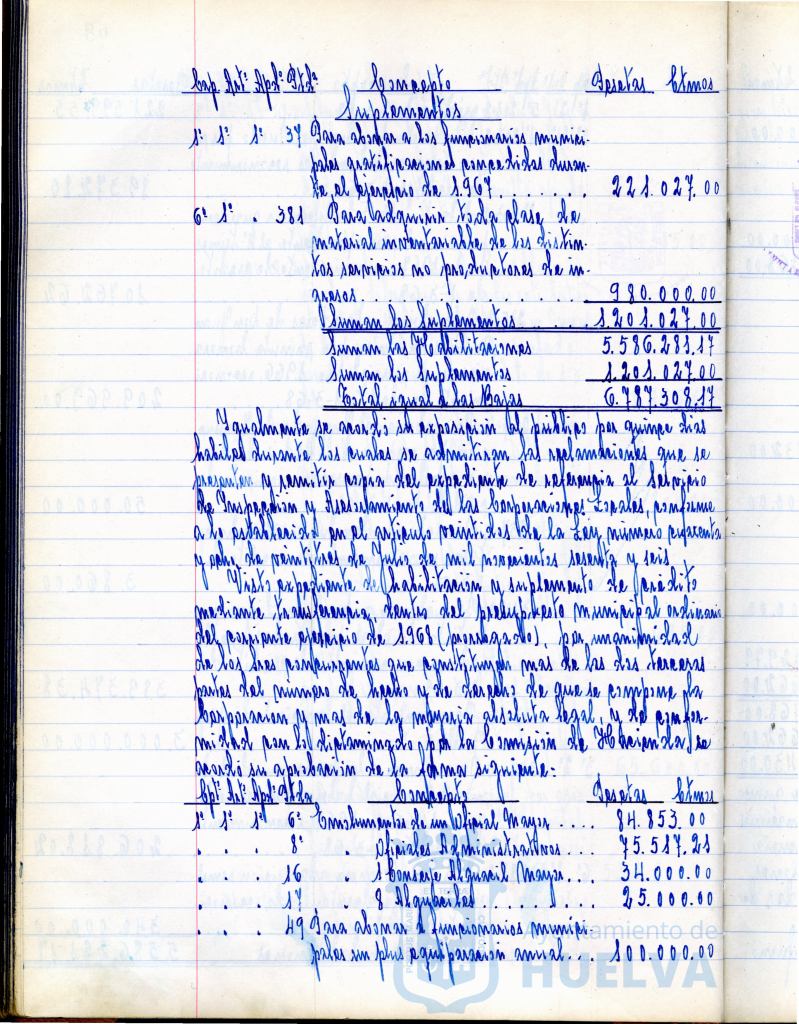 Cap. Artº. Apdº. Ptdª. Concepto Pesetas Ctmos
Suplementos
1º 1º 1º 37 Para abonar a los funcionarios munici-
pales gratificaciones concedidas duran-
te el ejercicio de 1967 . . . . . . . 221.027.00
6º 1º . 381 Para adquirir toda clase de
material inventariable de los distin-
tos servicios no productores de in-
gresos . . . . . . . . . . . . . . 980.000.00
Suman los Suplementos . . . . . 1.201.027.00
Suman las Habilitaciones 5.586.281,17
Suman los Suplementos 1.201.027.00
Total igual a las Bajas 6.787.308,17
Igualmente se acordó su exposición al público por quince dias
hábiles durante los cuales se admitiran las reclamaciones que se
presenten y remitir copia del expediente de referencia al Servicio
de Inspección y Asesoramiento de las Corporaciones Locales, conforme
a lo establecido en el artículo veintidos de la Ley número cuarenta
y ocho de veintitres de Julio de mil novecientos sesenta y seis.
Visto expediente de habilitación y suplemento de crédito
mediante transferencia, dentro del presupuesto municipal ordinario
del corriente ejercicio de 1968 (prorrogado), por unanimidad
de los tres concurrentes que constituyen mas de las dos terceras
partes del número de hecho y de derecho de que se compone la
Corporación y mas de la mayoria absoluta legal, y de confor-
midad con lo dictaminado por la Comisión de Hacienda, se
acordó su aprobación de la forma siguiente:
Cpº. Artº. Apdº. Ptda. Concepto Pesetas Ctmos
1º 1º 1º 6º Emolumentos de un Oficial Mayor . . . . 84.853.00
. . . 8º . Oficiales Administrativos . . . 75.517.21
. . 16 1 Conserje Alguacil Mayor . . . 34.000.00
. . 17 8 Alguaciles . . . 25.000.00
. . . 49 Para abonar a funcionarios munici-
pales un plus equiparación anual . . . 100.000.00
Ayuntamiento de
HUELVA